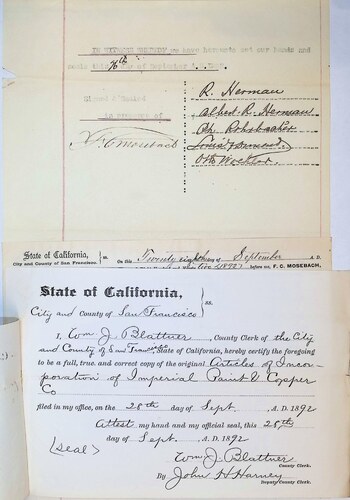 IN WITNESS WHEREOF we have hereunto set our hands and
seals this 26th day of September A.D. 1892.
Signed & Sealed
in presence of
F. C. Mosebach
R. Herman
Albert R. Herman
Ph. Rohrbacher
Otto
State of California,
City and County of San Francisco.
ss.
On this Twenty eighth day of September A.D.
1892 before me, F. C. MOSEBACH,
State of California,
City and County of San Francisco
ss.
I, Wm J. Blattner, County Clerk of the City
and County of San Francisco State of California, hereby certify the foregoing
to be a full, true, and correct copy of the original Articles of Incor-
poration of Imperial Paint & Copper
Co
filed in my office, on the 28th day of Sept. A.D. 1892
Attest my hand and my official seal, this 28th
day of Sept. A.D. 1892
(seal)
Wm J. Blattner
County Clerk.
By John H. Harney
Deputy County Clerk.